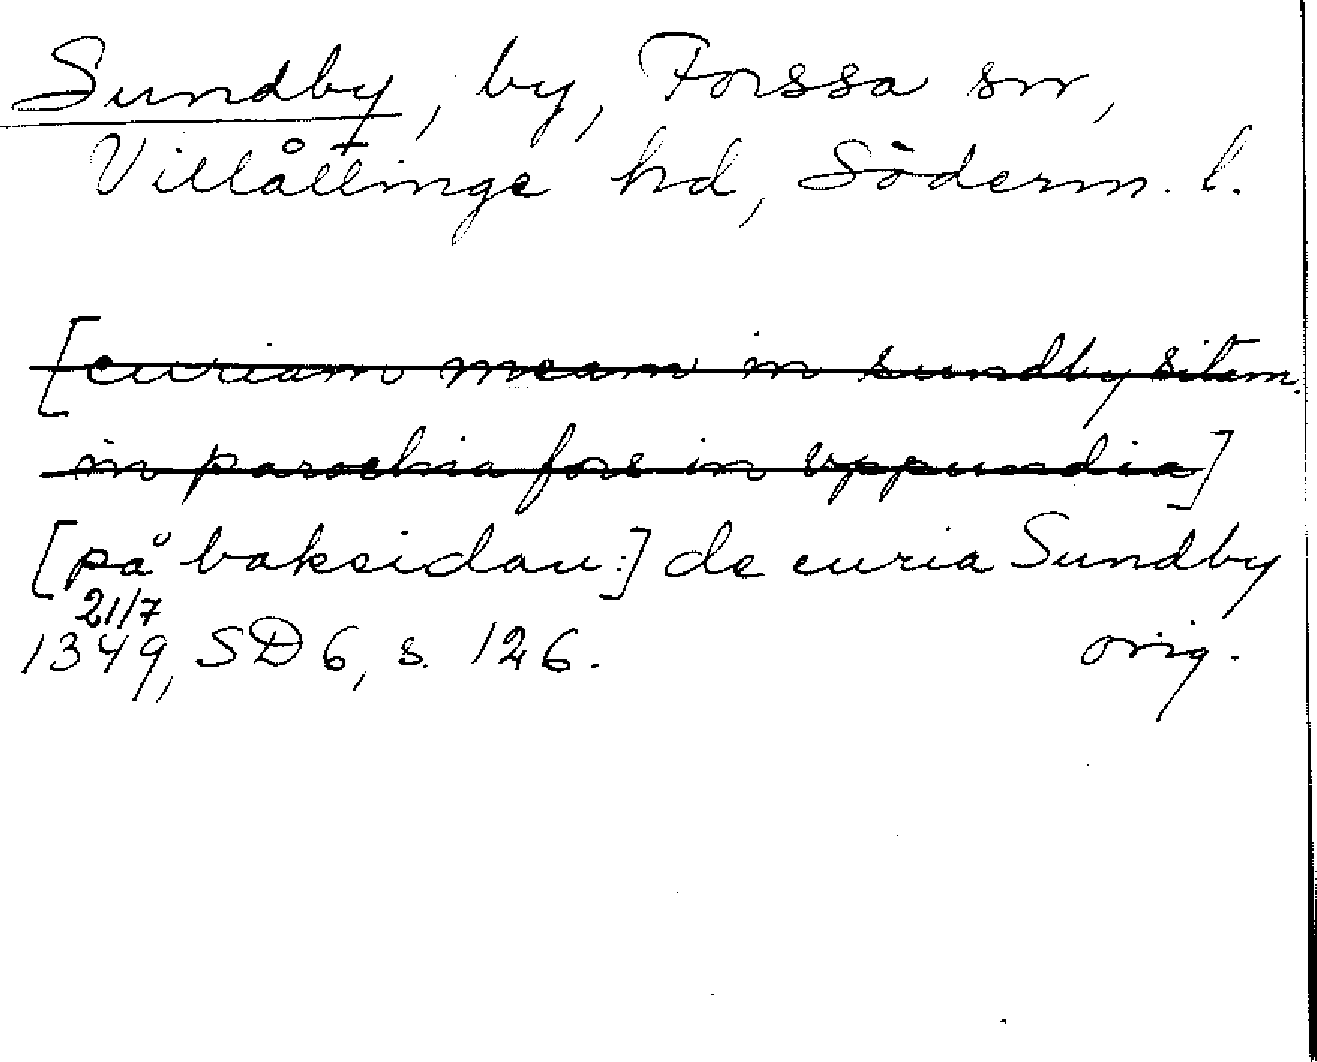 Sundby, by, Forssa sn,
Villåttinge hd, Söderm. l.
[curiam meam in sundby sitam
in parochia fors in vppundia]
[på baksidan:] de curia Sundby
21/7
1349, SD 6, s. 126. orig.